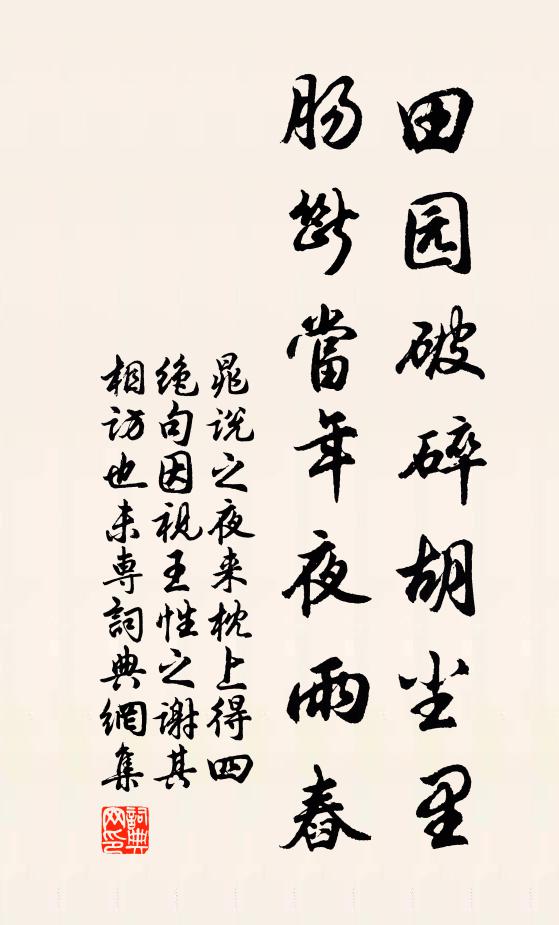 田园破碎胡尘里
肠斷當年夜雨舂
晁说之夜来枕上得四
绝句因视王性之谢其
相访也未専詞典網集
詞典网印